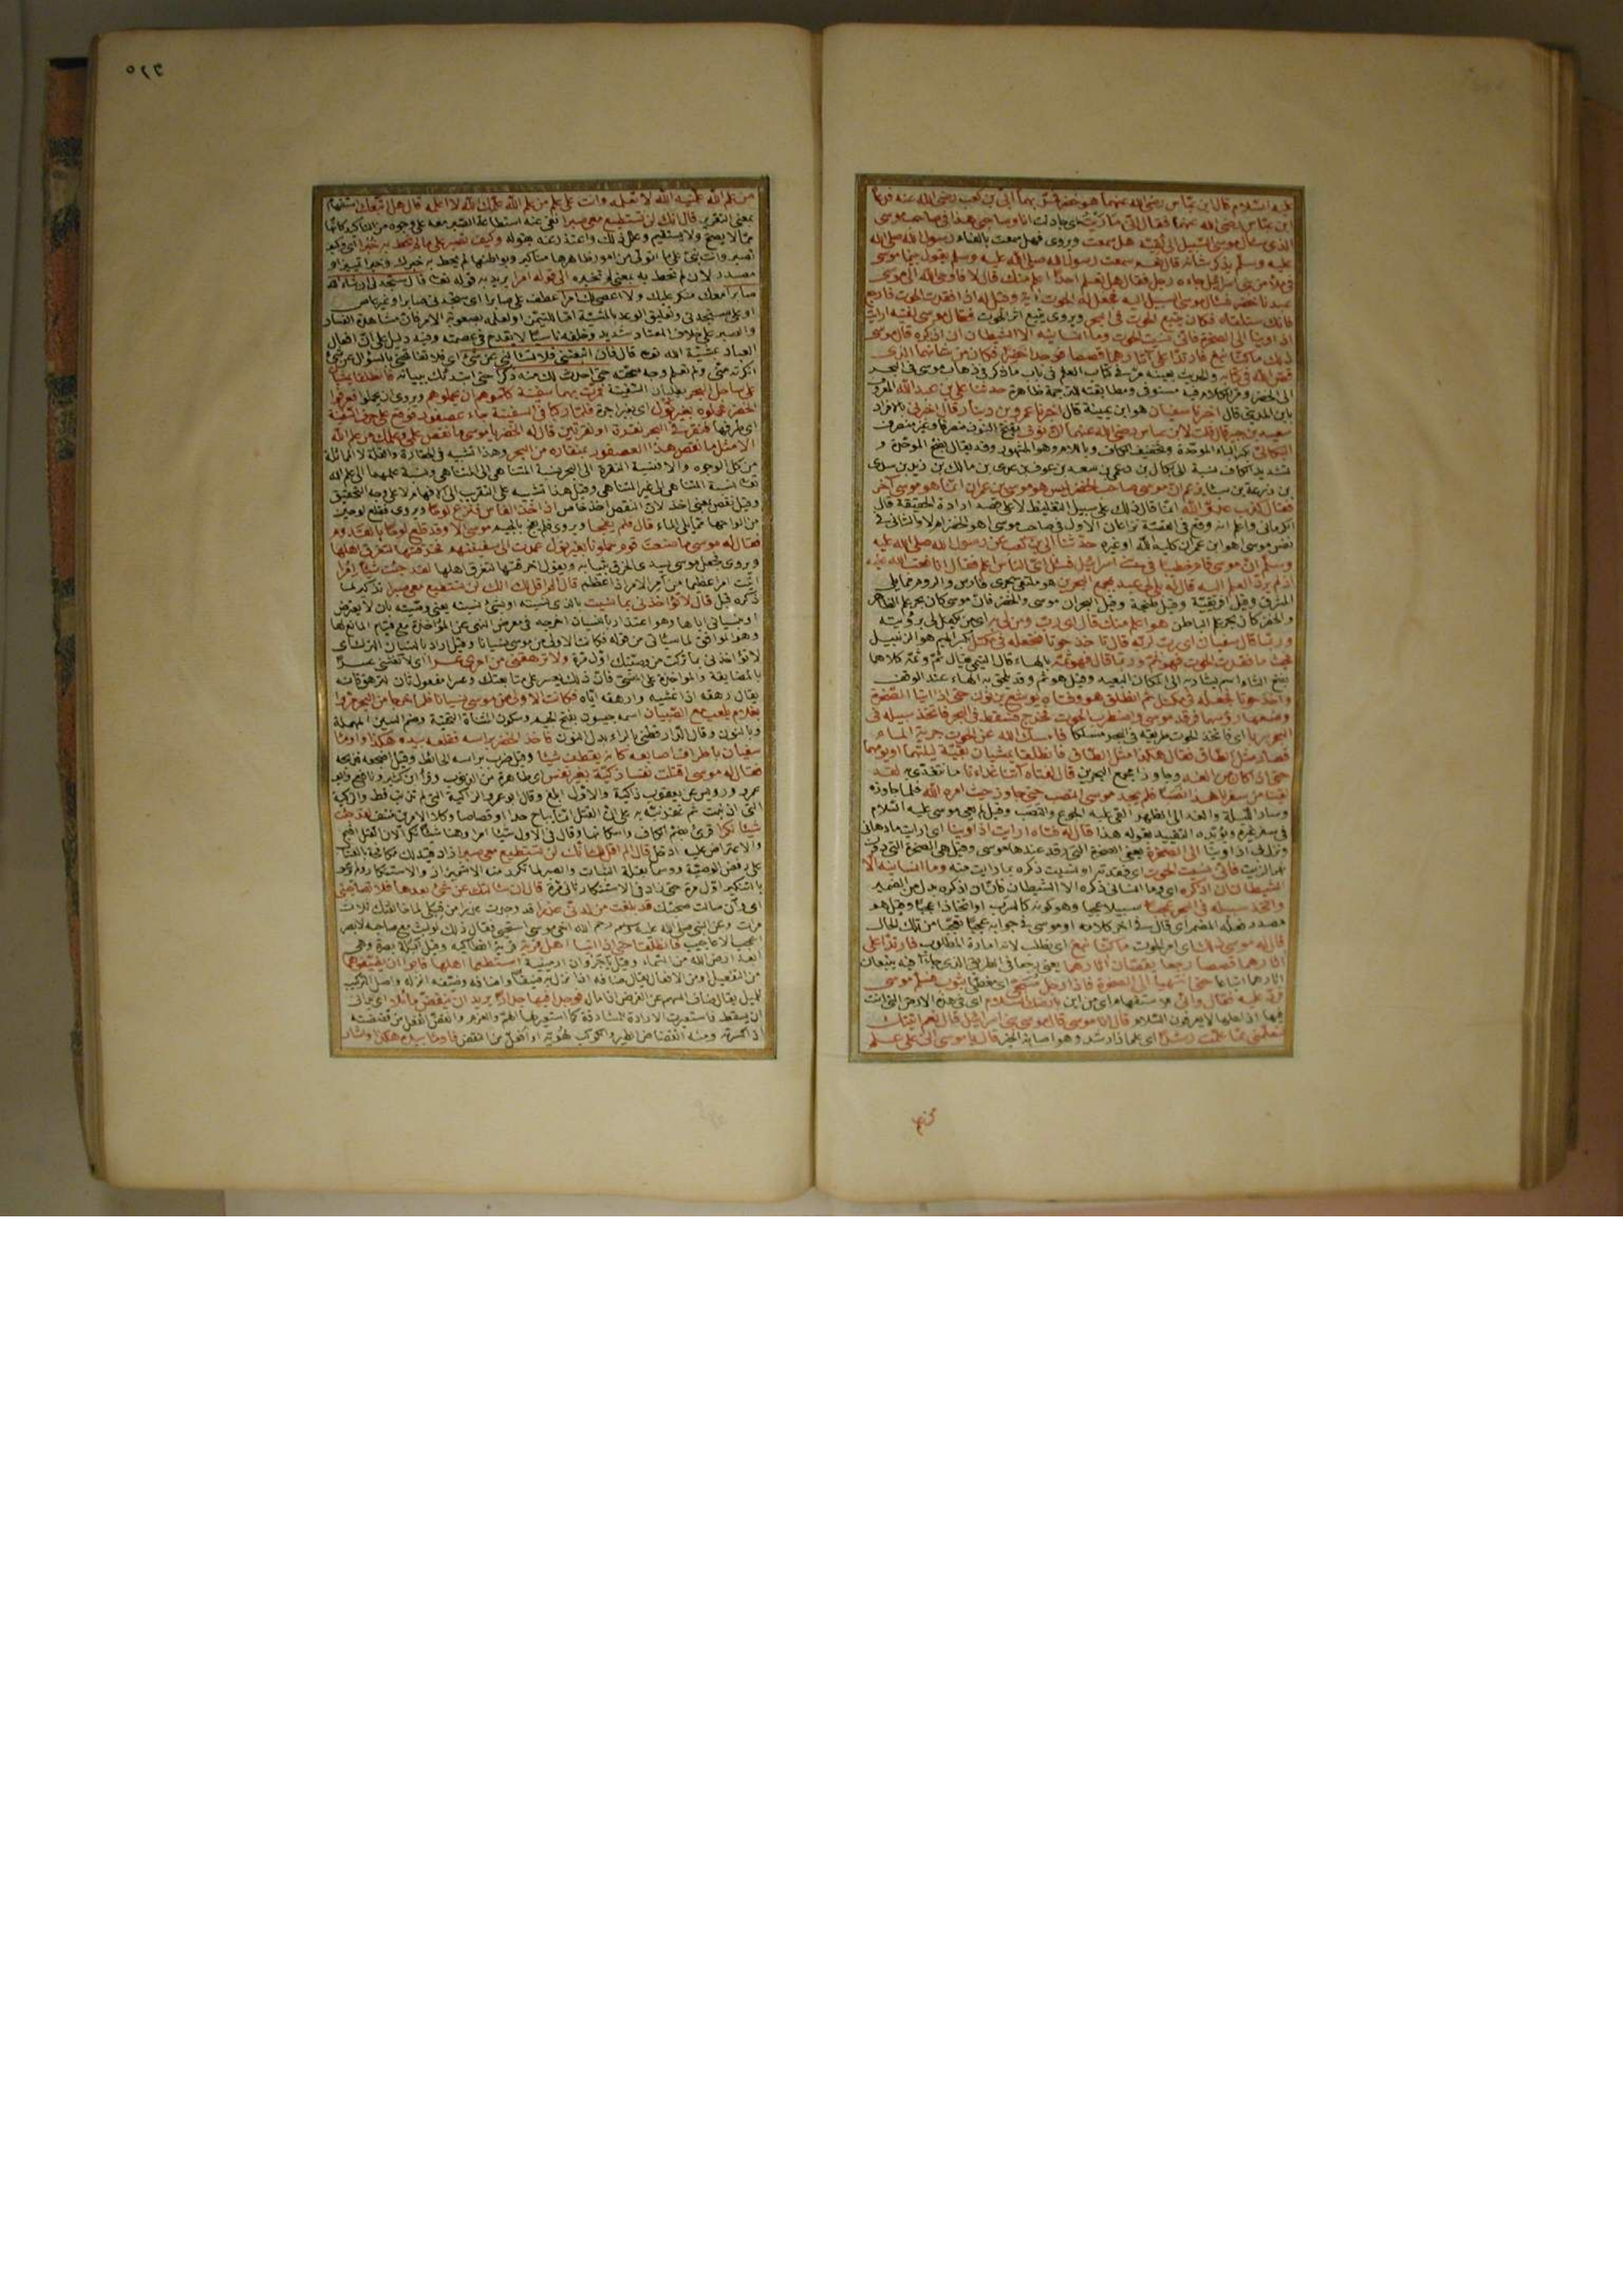 عليه السلام قال ابن عباس رضي الله عنهما هو خضر فمر بهما ابي بن كعب رضي الله عنه فدعاه
ابن عباس رضي الله عنهما فقال اني تماريت اي جادلت انا وصاحبي هذا في صاحب موسى
الذي سأل موسى السبيل الى لقيه هل سمعت ويروى فهل سمعت بالفاء رسول الله صلى الله
عليه وسلم يذكر شأنه قال نعم سمعت رسول الله صلى الله عليه وسلم يقول بينما موسى
في ملأ من بني اسرائيل جاءه رجل فقال هل تعلم احدا اعلم منك قال لا فاوحى الله الى موسى
عبدنا خضر فسأل موسى السبيل اليه فجعل له الحوت اية وقيل له اذا فقدت الحوت فارجع
فانك ستلقاه فكان يتبع الحوت في البحر ويروى يتبع اثر الحوت فقال لموسى فتاه ارايت
اذ اوينا الى الصخرة فاني نسيت الحوت وما انسانيه الا الشيطان ان اذكره قال موسى
ذلك ما كنا نبغ فارتدا على آثارهما قصصا فوجدا خضرا فكان من شأنهما الذي
قص الله في كتابه والحديث بعينه مر في كتاب العلم في باب ما ذكر في ذهاب موسى في البحر
الى الخضر ومر الكلام فيه مستوفى ومطابقته للترجمة ظاهرة حدثنا علي بن عبد الله المعروف
بابن المديني قال اخبرنا سفيان هو ابن عيينة قال اخبرنا عمرو بن دينار قال اخبرني بالافراد
سعيد بن جبير قال قلت لابن عباس رضي الله عنهما ان نوفا بفتح النون منصرفا وغير منصرف
البكالي بكسر الباء الموحدة وتخفيف الكاف وباللام وهو المشهور وقد يقال بفتح الموحدة و
تشديد الكاف نسبة الى بكال بن دعمي بن سعد بن عوف بن عدي بن مالك بن زيد بن سدد
بن زرعة بن سبأ يزعم ان موسى صاحب الخضر ليس هو موسى بن عمران انما هو موسى آخر
فقال كذب عدو الله انما قال ذلك على سبيل التغليظ لا على قصد ارادة الحقيقة قال
الكرماني واعلم انه وقع في القصة نزاعان الاول في صاحب موسى اهو الخضر ام لا والثاني في
نفس موسى اهو ابن عمران كليم الله او غيره حدثنا ابي بن كعب عن رسول الله صلى الله عليه
وسلم ان موسى قام خطيبا في بني اسرائيل فسئل اي الناس اعلم فقال انا فعتب الله عليه
اذ لم يرد العلم اليه فقال له بلى لي عبد بمجمع البحرين هو ملتقى بحري فارس والروم مما يلي
المشرق وقيل افريقية وقيل طنجة وقيل البحران موسى والخضر فان موسى كان بحر علم الظاهر
والخضر كان بحر علم الباطن هو اعلم منك قال اي رب ومن لي به اي من يكفل لي برؤيته
وربما قال سفيان اي رب وكيف لي به قال تأخذ حوتا فتجعله في مكتل بكسر الميم هو الزنبيل
حيث ما فقدت الحوت فهو ثم وربما قال فهو ثمه بالهاء
واخذ حوتا فجعله في مكتل ثم انطلق هو وفتاه يوشع بن نون حتى اذا اتيا الصخرة
وضعا رؤسهما فرقد موسى واضطرب الحوت فخرج فسقط في البحر فاتخذ سبيله في
البحر سربا اي فاتخذ الحوت طريقه في البحر مسلكا فامسك الله عن الحوت جرية الماء
فصار مثل الطاق فقال هكذا مثل الطاق فانطلقا يمشيان بقية ليلتهما ويومهما
حتى اذا كان من الغد وجاوزا مجمع البحرين قال لفتاه آتنا غداءنا ما نتغدى به لقد
لقينا من سفرنا هذا نصبا فلم يجد موسى النصب حتى جاوز حيث امره الله فلما جاوزه
وسار الليلة والغد الى الظهر القي عليه الجوع والنصب وقيل لم يعي موسى عليه السلام
في سفر غيره ويؤيده التقييد بقوله هذا قال له فتاه ارايت اذ اوينا اي ارايت ما دهاني
اذ اوينا الى الصخرة يعني الصخرة التي رقد عندها موسى وقيل هي الصخرة التي دون
نهر الزيت فاني نسيت الحوت اي فقدته او نسيت ذكره بما رايت منه وما انسانيه الا
الشيطان ان اذكره اي وما انساني ذكره الا الشيطان فان ان اذكره بدل من الضمير
واتخذ سبيله في البحر عجبا سبيلا عجبا وهو كونه كالسرب او اتخاذا عجبا وقيل هو
مصدر فعله المضمر اي قال في آخر كلامه او موسى في جوابه عجبا تعجبا من تلك الحال
قال له موسى ذلك اي امر الحوت ما كنا نبغ اي نطلب لانه امارة المطلوب فارتدا على
آثارهما قصصا رجعا يقصان آثارهما يعني رجعا في الطريق الذي جاءا فيه يتبعان
آثارهما اتباعا حتى انتهيا الى الصخرة فاذا رجل مسجى اي مغطى بثوب فسلم موسى
فرد عليه فقال وانى بارضك السلام اي في هذه الارض التي انت
فيها اذ اهلها لا يعرفون السلام قال انا موسى قال موسى بني اسرائيل قال نعم اتيتك
لتعلمني مما علمت رشدا اي علما ذا رشد وهو اصابة الخير قال يا موسى اني على علم
٥٢٦
من علم الله علمنيه الله لا تعلمه وانت على علم من علم الله علمك الله لا اعلمه قال هل اتبعك استفهام
بمعنى التقرير قال انك لن تستطيع معي صبرا نفى عنه استطاعة الصبر معه على وجوه من التأكيد كانها
مما لا يصح ولا يستقيم وعلل ذلك واعتذر عنه بقوله وكيف تصبر على ما لم تحط به خبرا اي وكيف
تصبر وانت نبي على ما اتولى من امور ظواهرها مناكير وبواطنها لم يحط به خبرك وخبرا تمييز او
مصدر لان لم تحط به بمعنى لم تخبره الى قوله امرا يريد به قوله تعالى قال ستجدني ان شاء الله
صابرا معك غير منكر عليك ولا اعصي لك امرا عطف على صابرا اي ستجدني صابرا وغير عاص
او على ستجدني وتعليق الوعد بالمشيئة اما للتيمن او لعلمه بصعوبة الامر فان مشاهدة الفساد
والصبر على خلاف المعتاد شديد وفيه دليل على ان افعال
العباد بمشيئة الله تعالى قال فان اتبعتني فلا تسألني عن شيء اي فلا تفاتحني بالسؤال عن شيء
انكرته مني ولم تعلم وجه صحته حتى احدث لك منه ذكرا حتى ابتدئك ببيانه فانطلقا يمشيان
على ساحل البحر يطلبان السفينة فمرت بهما سفينة كلموهم ان يحملوهم ويروى ان يحملوا فعرفوا
الخضر فحملوه بغير نول اي بغير اجرة فلما ركبا في السفينة جاء عصفور فوقع على حرف السفينة
اي طرفها فنقر في البحر نقرة او نقرتين قال له الخضر يا موسى ما نقص علمي وعلمك من علم الله
الا مثل ما نقص هذا العصفور بمنقاره من البحر وهذا تشبيه في الحقارة والقلة لا المماثلة
من كل الوجوه والا فنسبة النقرة الى البحر نسبة المتناهي الى المتناهي ونسبة علمهما الى علم الله
تعالى نسبة المتناهي الى غير المتناهي وقيل هذا تشبيه على التقريب الى الافهام لا على وجه التحقيق
وقيل نقص بمعنى اخذ لان النقص اخذ خاص اذ اخذ الفأس فنزع لوحا ويروى فقلع لوحين
من الواحها مما يلي الماء قال فلم يفجأ موسى الا وقد قلع لوحا بالقدوم
فقال له موسى ما صنعت قوم حملونا بغير نول عمدت الى سفينتهم فخرقتها لتغرق اهلها
لقد جئت شيئا امرا
اتيت امرا عظيما من امر الامر اذا عظم قال الم اقل لك انك لن تستطيع معي صبرا تذكير لما
ذكره قبل قال لا تؤاخذني بما نسيت بالذي نسيته او بشيء نسيته يعني وصيته بان لا يعترض
او بنسياني اياها وهو اعتذار بالنسيان اخرجه في معرض النهي عن المؤاخذة مع قيام المانع لها
فكانت الاولى من موسى نسيانا وقيل اراد بالنسيان الترك اي
لا تؤاخذني بما تركت من وصيتك اول مرة ولا ترهقني من امري عسرا اي لا تغشني عسرا
بالمضايقة والمؤاخذة على المنسي فان ذلك يعسر علي متابعتك وعسرا مفعول ثان لترهق فانه
يقال رهقه اذا غشيه وارهقه اياه فكانت الاولى من موسى نسيانا فلما خرجا من البحر مروا
بغلام يلعب مع الصبيان اسمه جيسون بفتح الجيم وسكون المثناة التحتية وضم السين المهملة
وبالنون وقال الدارقطني بالراء بدل النون فاخذ الخضر برأسه فقلعه بيده هكذا واومأ
سفيان باطراف اصابعه كانه يقطف شيئا وقيل ضرب برأسه الى الحائط وقيل اضجعه فذبحه
فقال له موسى اقتلت نفسا زكية بغير نفس اي طاهرة من الذنوب وقرأ ابن كثير ونافع وابو
عمرو ورويس عن يعقوب زاكية والاول ابلغ وقال ابو عمرو الزاكية التي لم تذنب قط والزكية
التي اذنبت ثم غفرت
شيئا نكرا قرئ بضم الكاف واسكانها وقال في الاول شيئا امرا وهنا شيئا نكرا لان القتل اقبح
والاعتراض عليه ادخل قال الم اقل لك انك لن تستطيع معي صبرا زاد فيه لك مكافحة بالعتاب
على رفض الوصية ووسما بقلة الثبات والصبر لما تكرر منه الاشمئزاز والاستنكار ولم يرعو
بالتذكير اول مرة حتى زاد في الاستنكار ثاني مرة قال ان سألتك عن شيء بعدها فلا تصاحبني
اي وان سألت صحبتك قد بلغت من لدني عذرا قد وجدت عذرا من قبلي لما خالفتك ثلاث
مرات وعن النبي صلى الله عليه وسلم رحم الله اخي موسى استحيى فقال ذلك لو لبث مع صاحبه لابصر
اعجب الاعاجيب فانطلقا حتى اذا اتيا اهل قرية قرية انطاكية وقيل ابلة بصرة وهي
ابعد ارض الله من السماء وقيل باجروان ارمينية استطعما اهلها فابوا ان يضيفوهما
من التفعيل او من الافعال يقال ضافه اذا نزل به ضيفا واضافه وضيفه انزله واصل التركيب
للميل يقال ضاف السهم عن الغرض اذا مال فوجدا فيها جدارا يريد ان ينقض مائلا اي يداني
ان يسقط فاستعيرت الارادة للمشارفة كما استعير لها الهم والعزم وانقض انفعل من قضضته
اذا كسرته ومنه انقضاض الطير والكوكب لهويه او افعل من النقض فاومأ بيده هكذا واشار